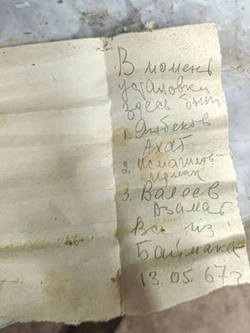 В момент
установки
здесь были
1. Янбеков
Ахат
2.
3. Валеев
Азамат
Все из
Баймака
13.05.67г